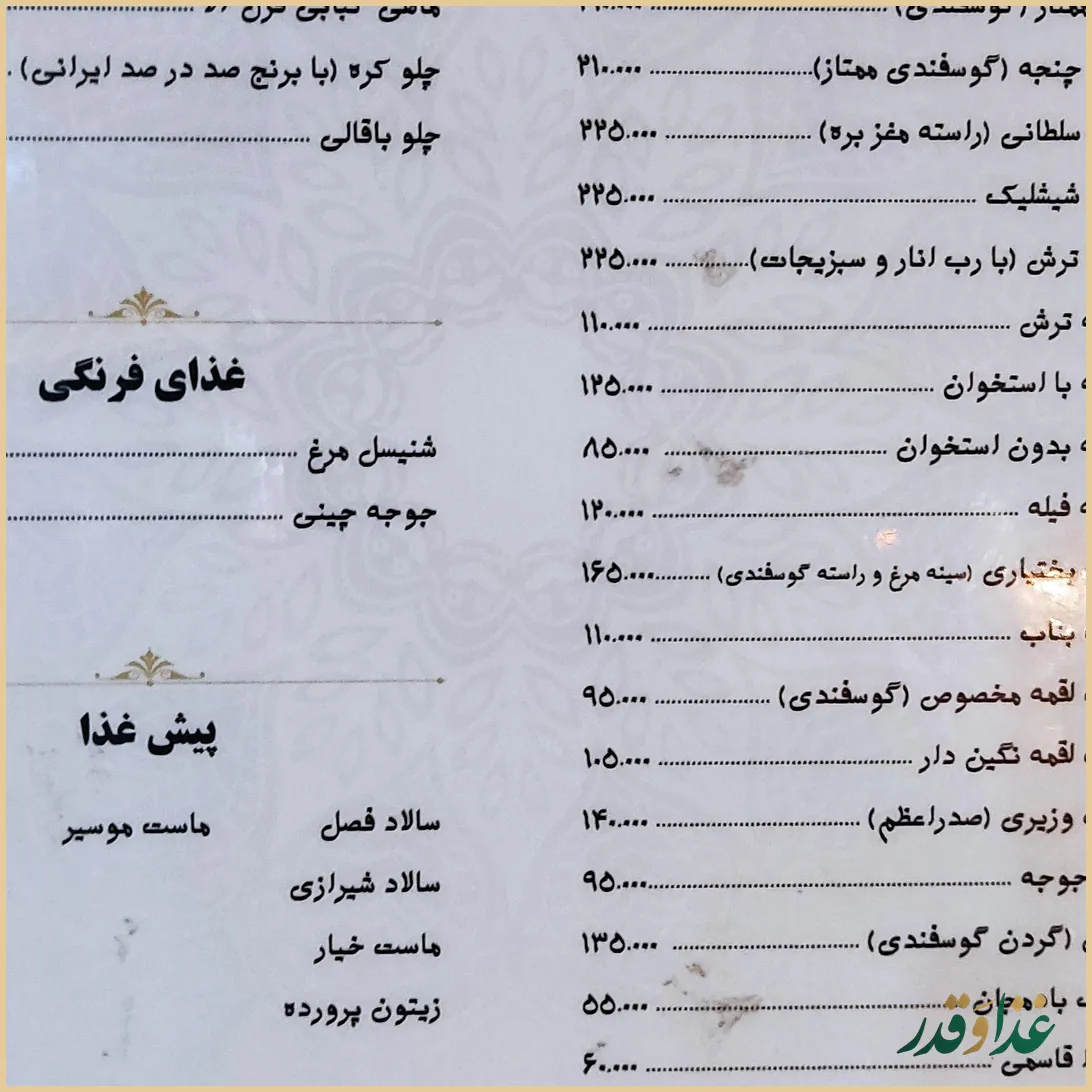 ممتاز (گوسفندی)
چنجه (گوسفندی ممتاز) ۲۱۰.۰۰۰
سلطانی (راسته مغز بره) ۲۲۵.۰۰۰
شیشلیک ۲۲۵.۰۰۰
ترش (با رب انار و سبزیجات) ۲۲۵.۰۰۰
ترش ۱۱۰.۰۰۰
با استخوان ۱۲۵.۰۰۰
بدون استخوان ۸۵.۰۰۰
فیله ۱۲۰.۰۰۰
بختیاری (سینه مرغ و راسته گوسفندی) ۱۶۵.۰۰۰
بناب ۱۱۰.۰۰۰
لقمه مخصوص (گوسفندی) ۹۵.۰۰۰
لقمه نگین دار ۱۰۵.۰۰۰
وزیری (صدراعظم) ۱۴۰.۰۰۰
جوجه ۹۵.۰۰۰
(گردن گوسفندی) ۱۳۵.۰۰۰
بادمجان ۵۵.۰۰۰
قاسمی ۶۰.۰۰۰
ماهی کبابی قزل آلا
چلو کره (با برنج صد در صد ایرانی)
چلو باقالی
غذای فرنگی
شنیسل مرغ
جوجه چینی
پیش غذا
سالاد فصل ماست موسیر
سالاد شیرازی
ماست خیار
زیتون پرورده
غذا و قدر